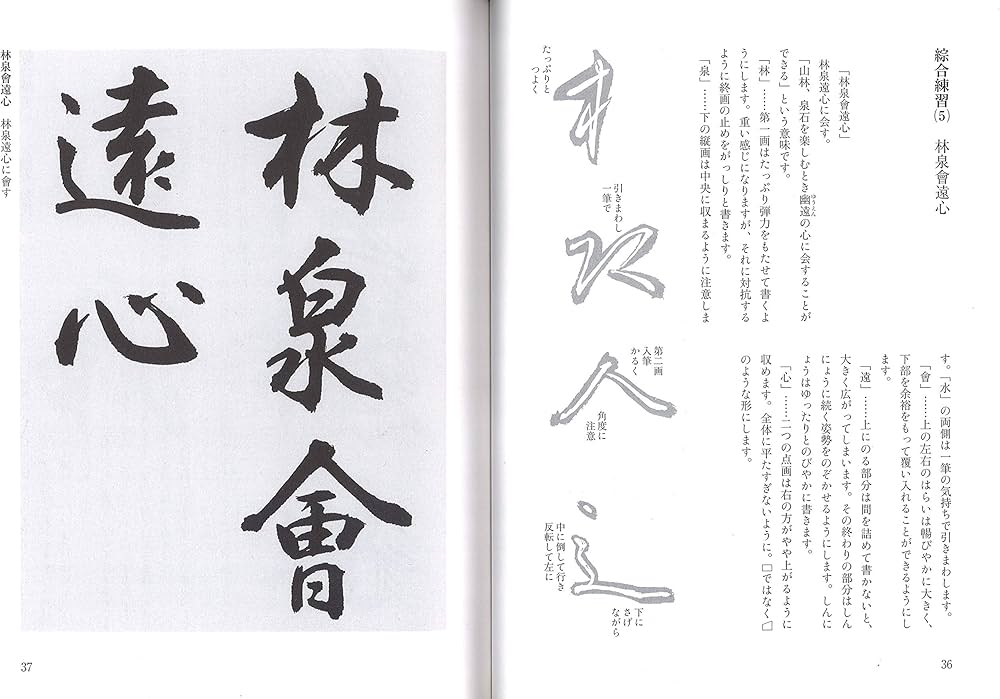 綜合練習⑸　林泉會遠心
「林泉會遠心」
林泉遠心に会す。
「山林、泉石を楽しむとき幽遠の心に会することが
ゆうえん
できる」という意味です。
「林」……第一画はたっぷり弾力をもたせて書くよ
うにします。重い感じになりますが、それに対抗する
ように終画の止めをがっしりと書きます。
「泉」……下の縦画は中央に収まるように注意しま
す。「水」の両側は一筆の気持ちで引きまわします。
「會」……上の左右のはらいは暢びやかに大きく、
下部を余裕をもって覆い入れることができるようにし
ます。
「遠」……上にのる部分は間を詰めて書かないと、
大きく広がってしまいます。その終わりの部分はしん
にょうに続く姿勢をのぞかせるようにします。しんに
ょうはゆったりとのびやかに書きます。
「心」……二つの点画は右の方がやや上がるように
収めます。全体に平たすぎないように。□ではなく▱
のような形にします。
たっぷりと
つよく
引きまわし
一筆で
第二画
入筆
かるく
角度に
注意
中に倒して行き
反転して左に
下に
さげ
ながら
36
林泉會
遠心
林泉會遠心　林泉遠心に會す
37